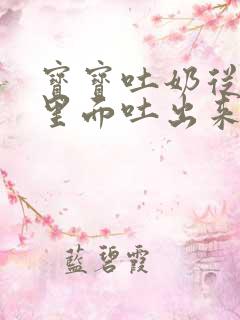 寶寶吐奶從
里而吐出來
藍碧霞